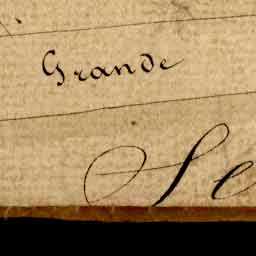 Grande
Se